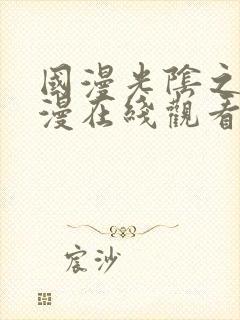 國漫光陰之
漫在綫觀看
宸沙